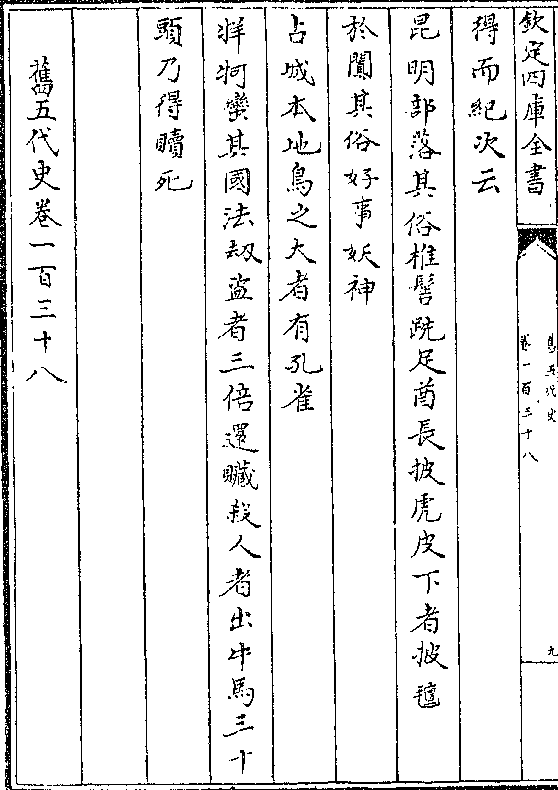 欽定四庫全書
舊五代史
卷一百三十八
九
得而紀次云
昆明部落其俗椎髻跣足酋長披虎皮下者披氊
於闐其俗好事妖神
占城本地鳥之大者有孔雀
牂牁蠻其國法刼盜者三倍還贜殺人者出牛馬三十
頭乃得贖死
舊五代史卷一百三十八